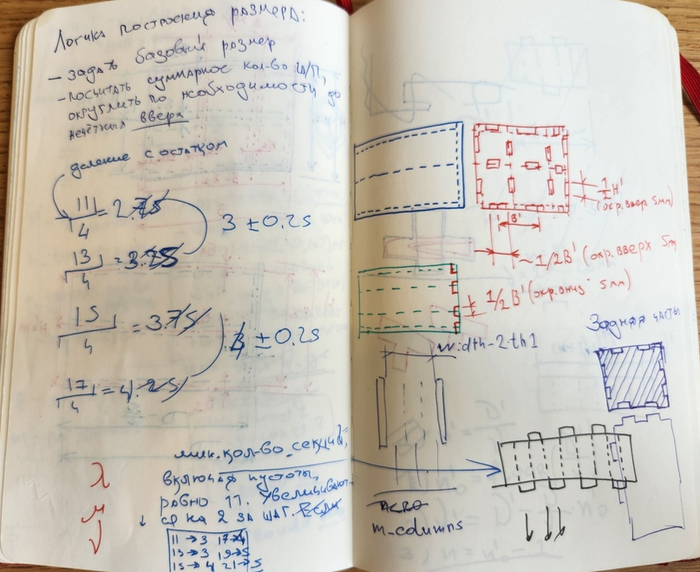 Логика построения размера:
- задать базовый размер
- посчитать суммарное кол-во ш/п,
округлить по необходимости до
нечётных вверх
деление с остатком
11/4 = 2.75
13/4 = 3.25
3 ± 0.25
15/4 = 3.75
17/4 = 4.25
4 ± 0.25
мин. кол-во секций,
включая пустоты,
равно 11. Увеличивают
ся на 2 за шаг.
11 → 3
13 → 3 19 → 5
15 → 4 21 → 5
λ
μ
ν
1/2 H'
(окр. вверх 5мм)
B'
~ 1/2 B' (окр. вверх 5m
1/2 B' (окр. вниз 5мм)
Задняя часть
width-2·th1
m-columns